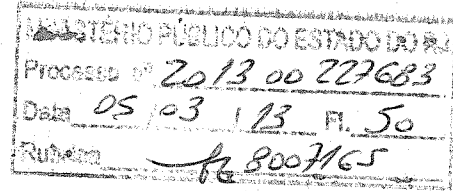 MINISTÉRIO PÚBLICO DO ESTADO DO RJ
Processo nº 2013 00 227683
Data 05 / 03 / 13 Fl. 50
Rubrica 8007165